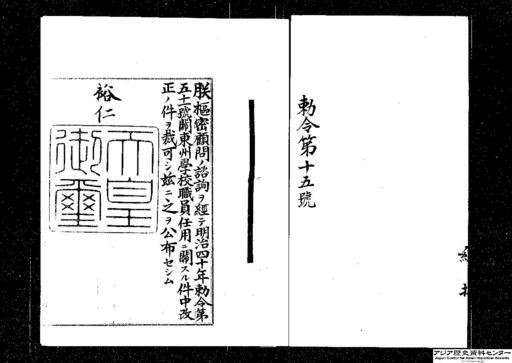 勅令第十五號
朕樞密顧問ノ諮詢ヲ經テ明治四十年勅令第
五十號關東州學校職員任用ニ關スル件中改
正ノ件ヲ裁可シ茲ニ之ヲ公布セシム
裕仁
天皇
御璽
アジア歴史資料センター
Japan Center for Asian Historical Records